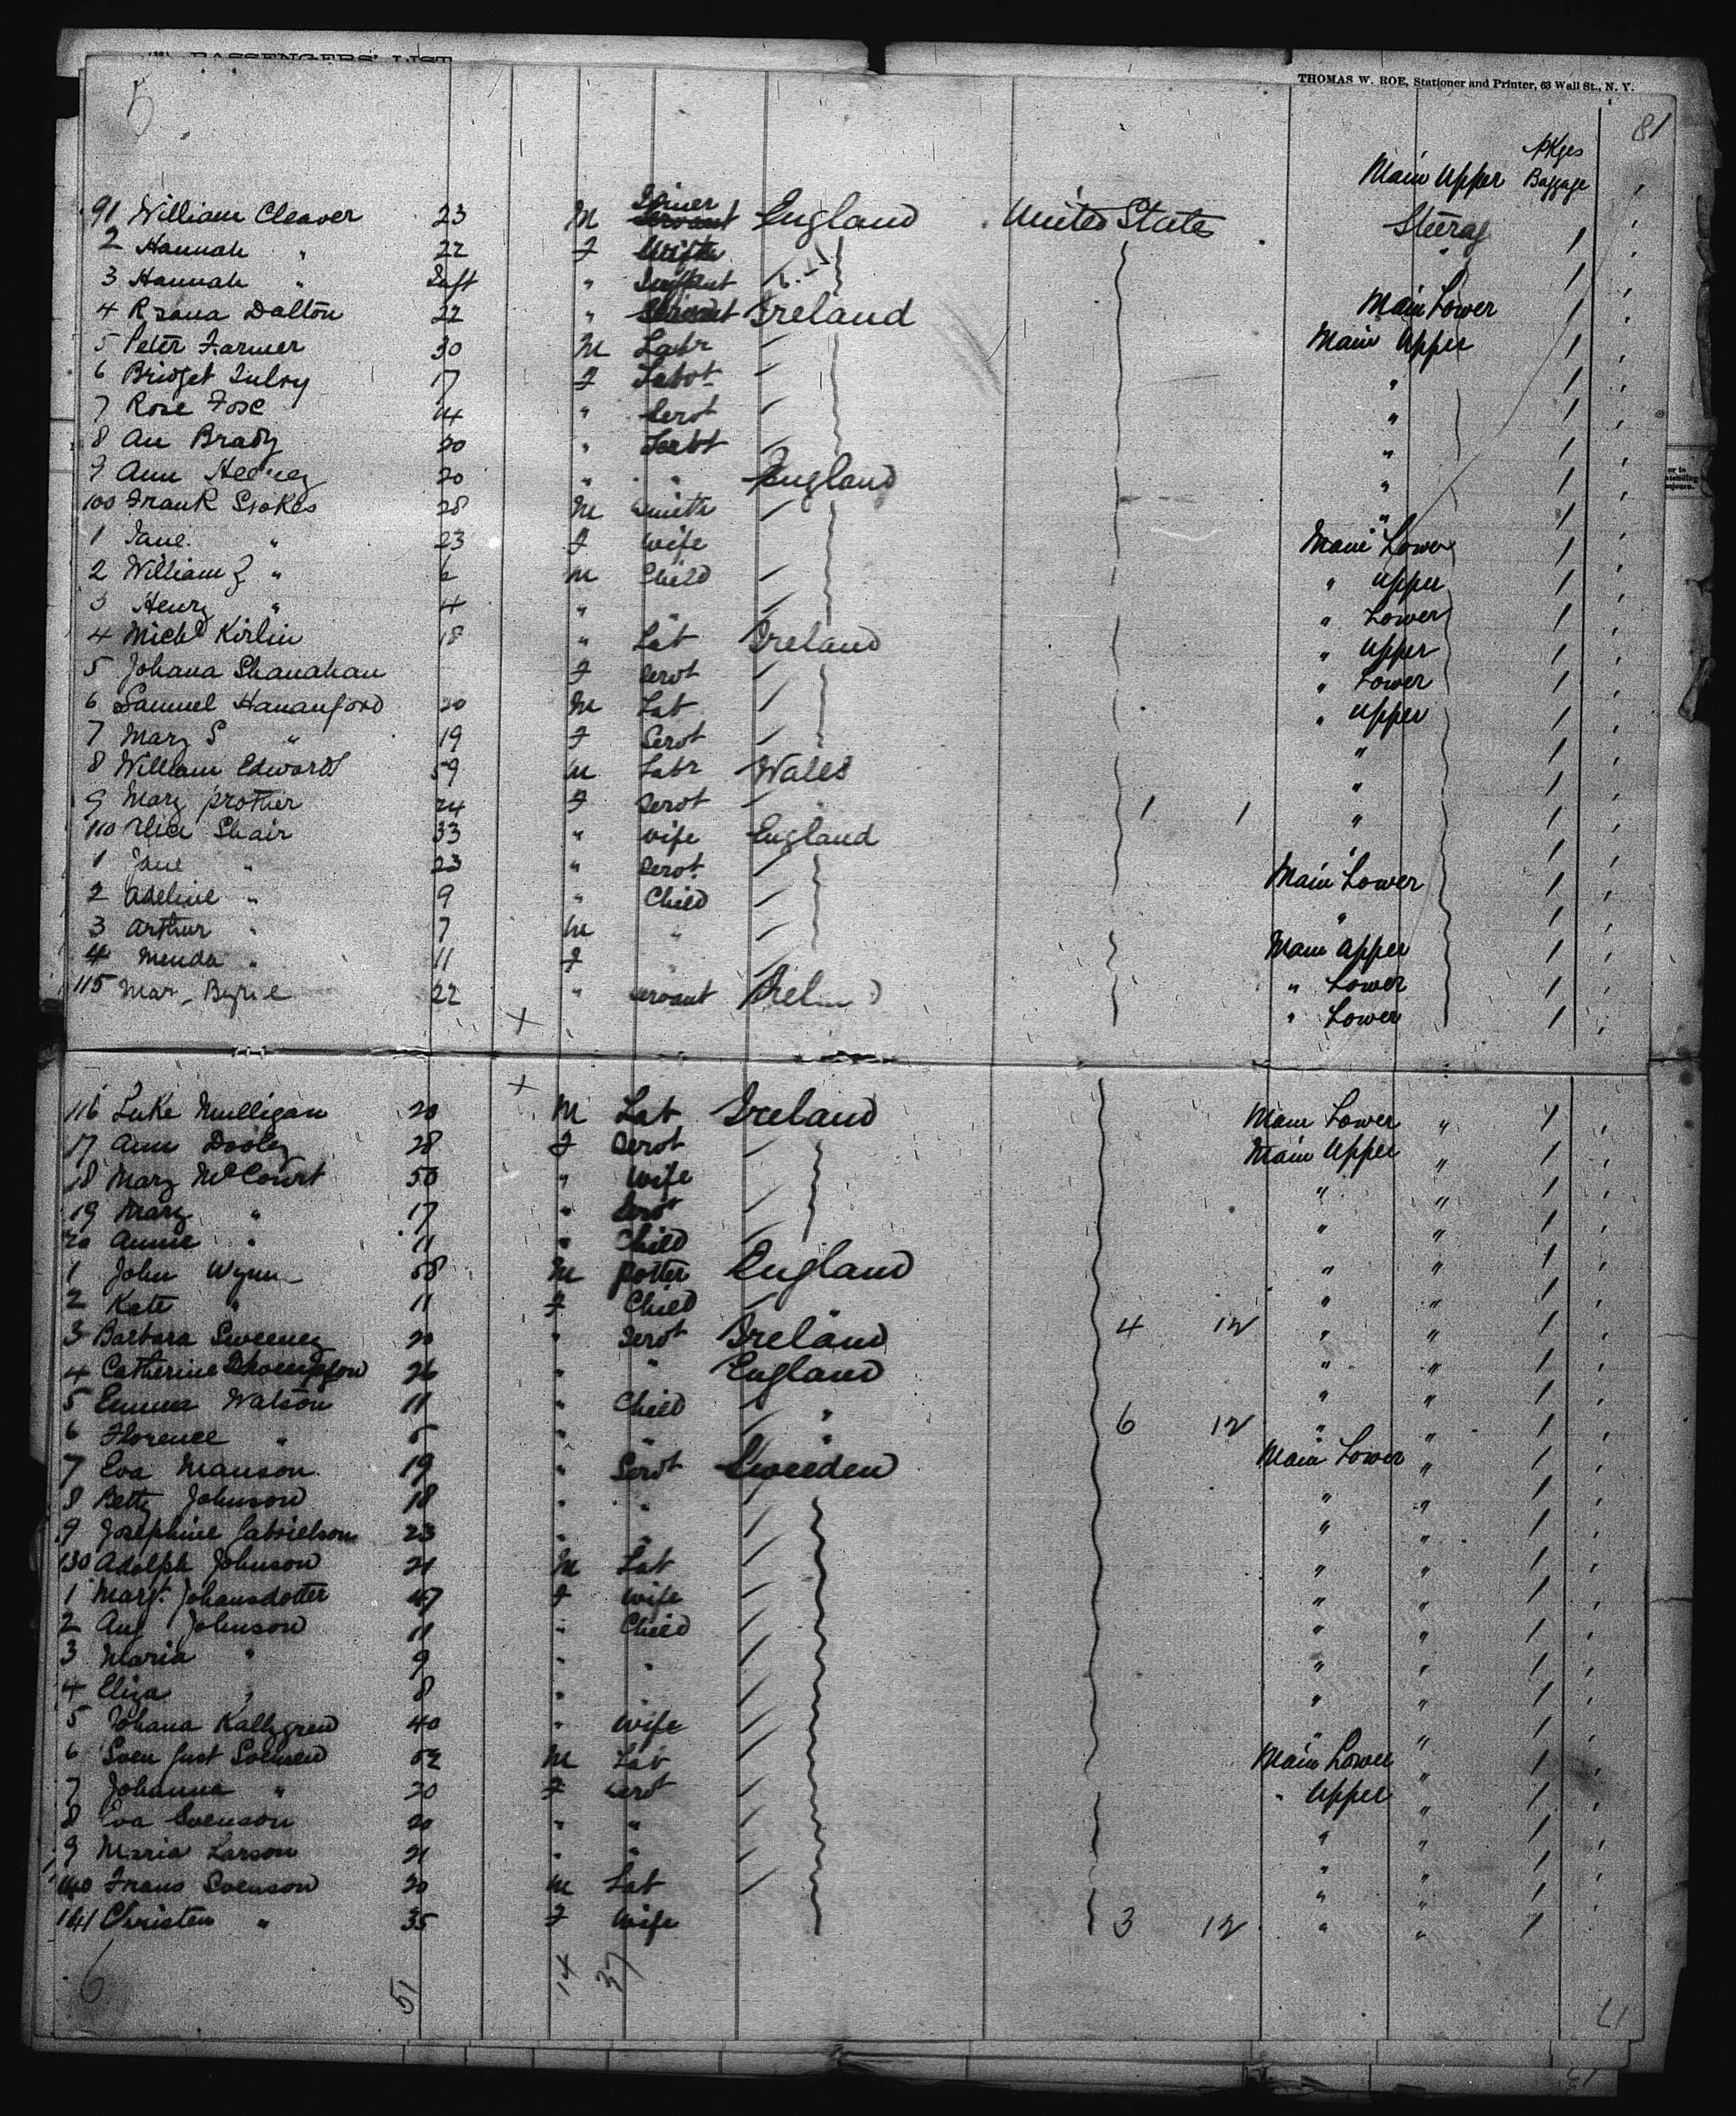 PASSENGERS' LIST
THOMAS W. ROE, Stationer and Printer, 63 Wall St., N. Y.
5 81
Main Upper Pkges Baggage
91 William Cleaver 23 M Joiner England United State Steerag
2 Hannah " 22 F Wife " 1
3 Hannah " Inft " Infant 1
4 Rsana Dalton 22 " Servant Ireland Main Lower 1
5 Peter Farmer 30 M Labr Main Upper 1
6 Bridget 17 F " 1
7 Rose 14 " Servt " 1
8 An Brady 20 " Servt " 1
9 Ann 20 " " England " 1
100 Frank Stokes 28 M Smith " 1
1 Jane " 23 F Wife Main Lower 1
2 William J " 6 M Child " Upper 1
3 Henry " 4 " " " Lower 1
4 Michl Kirlin 18 " Lab Ireland " Upper 1
5 Johana Shanahan F Servt " Lower 1
6 Samuel Hananford 20 M Lab " Upper 1
7 Mary S " 19 F Servt " 1
8 William Edwards 59 M Labr Wales " 1
9 Mary prother 24 F Servt 1 1 " 1
110 Alice Shair 33 " wife England " 1
1 Jane " 23 " Servt Main Lower 1
2 Adeline " 9 " Child " 1
3 Arthur " 7 M " Main Upper 1
4 Menda " 11 F " Lower 1
115 22 " Servant Ireland " Lower 1
116 Luke Mulligan 20 M Lab Ireland Main Lower " 1
17 Ann Dooley 28 F Servt Main Upper " 1
18 Mary McCourt 50 " Wife " " 1
19 Mary " 17 " Servt " " 1
20 Annie " 11 " Child " " 1
1 John Wynn 58 M potter England " " 1
2 Kate " 11 F Child " " " 1
3 Barbara Sweeney 20 " Servt Ireland 4 12 " " 1
4 Catherine 26 " " England " " 1
5 Emma Watson 11 " Child " " " 1
6 Florence " 5 " " " 6 12 " " 1
7 Eva Manson 19 " Servt Sweeden Main Lower " 1
8 Betty Johnson 18 " " " " 1
9 Josephine Gabrielson 23 " " " " 1
130 Adolph Johnson 21 M Lab " " 1
1 Margt. Johansdotter 47 F Wife " " 1
2 Aug Johnson 11 " Child " " 1
3 Maria " 9 " " " " 1
4 Eliza " 8 " " " " 1
5 Johana Kallgren 40 " Wife " " 1
6 Sven Gust 52 M Lab Main Lower " 1
7 Johanna " 20 F Servt " Upper " 1
8 Eva Svenson 20 " " " " 1
9 Maria Larson 21 " " " " 1
140 Frans Svenson 20 M Lab " " 1
141 Christen " 35 F Wife 3 12 " " 1
6 51 14 37